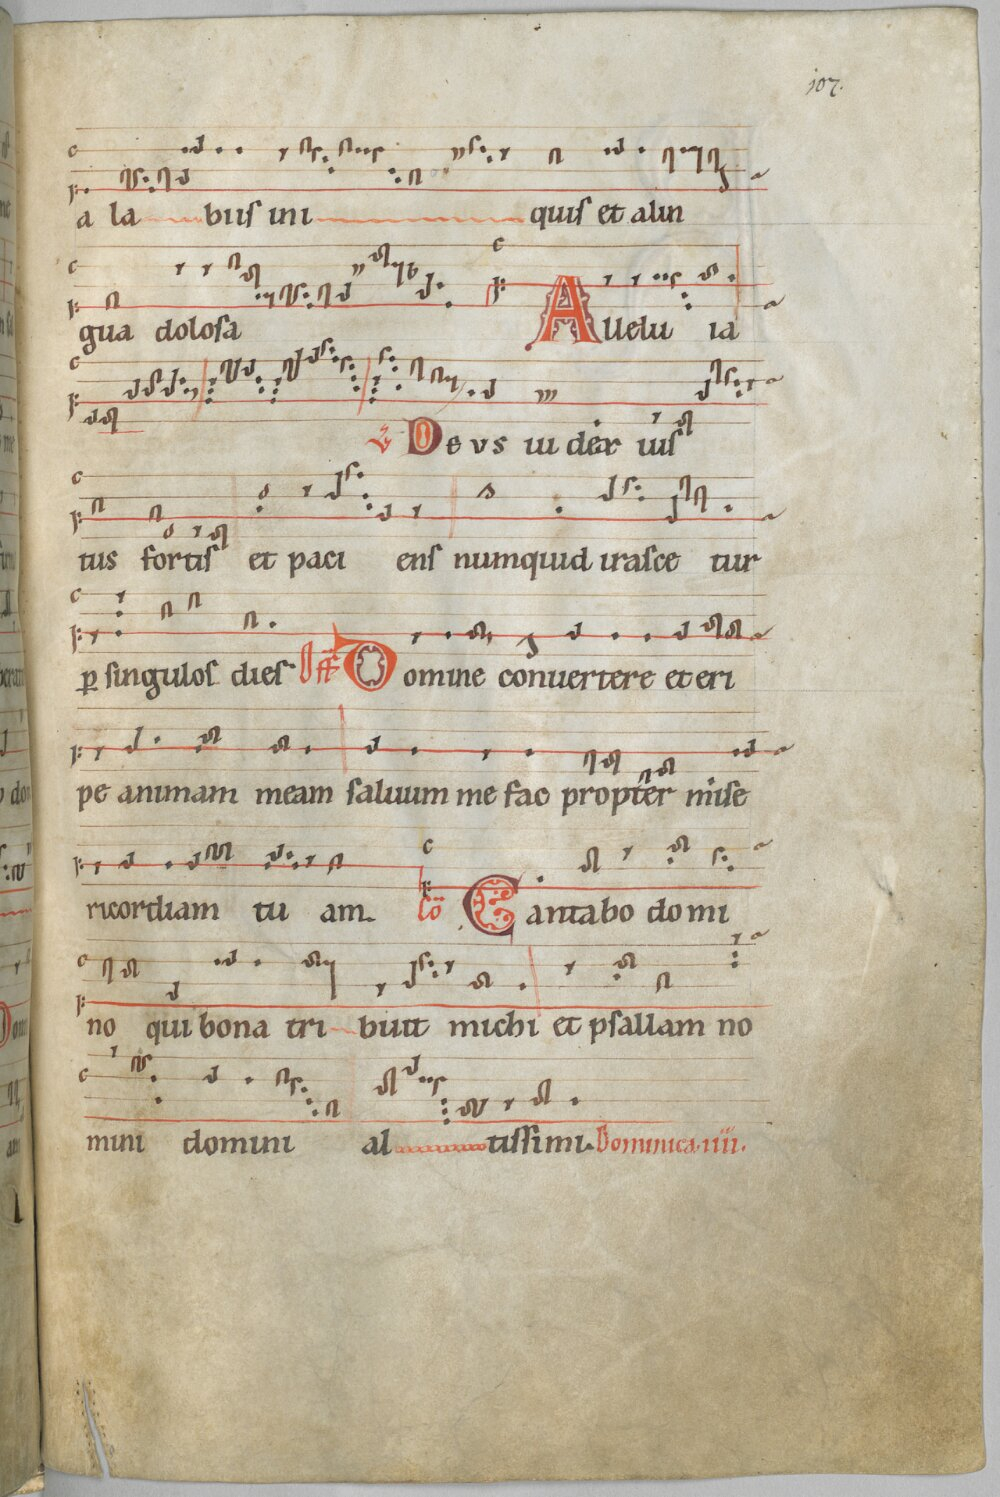 107.
a la biis ini quis et alin
gua dolosa Allelu ia
V Deus iudex ius
tus fortis et paci ens numquid irasce tur
p singulos dies Off Domine convertere et eri
pe animam meam saluum me fac propter mise
ricordiam tu am. Co Cantabo domi
no qui bona tri buit michi et psallam no
mini domini al tissimi. Dominica.iiii.